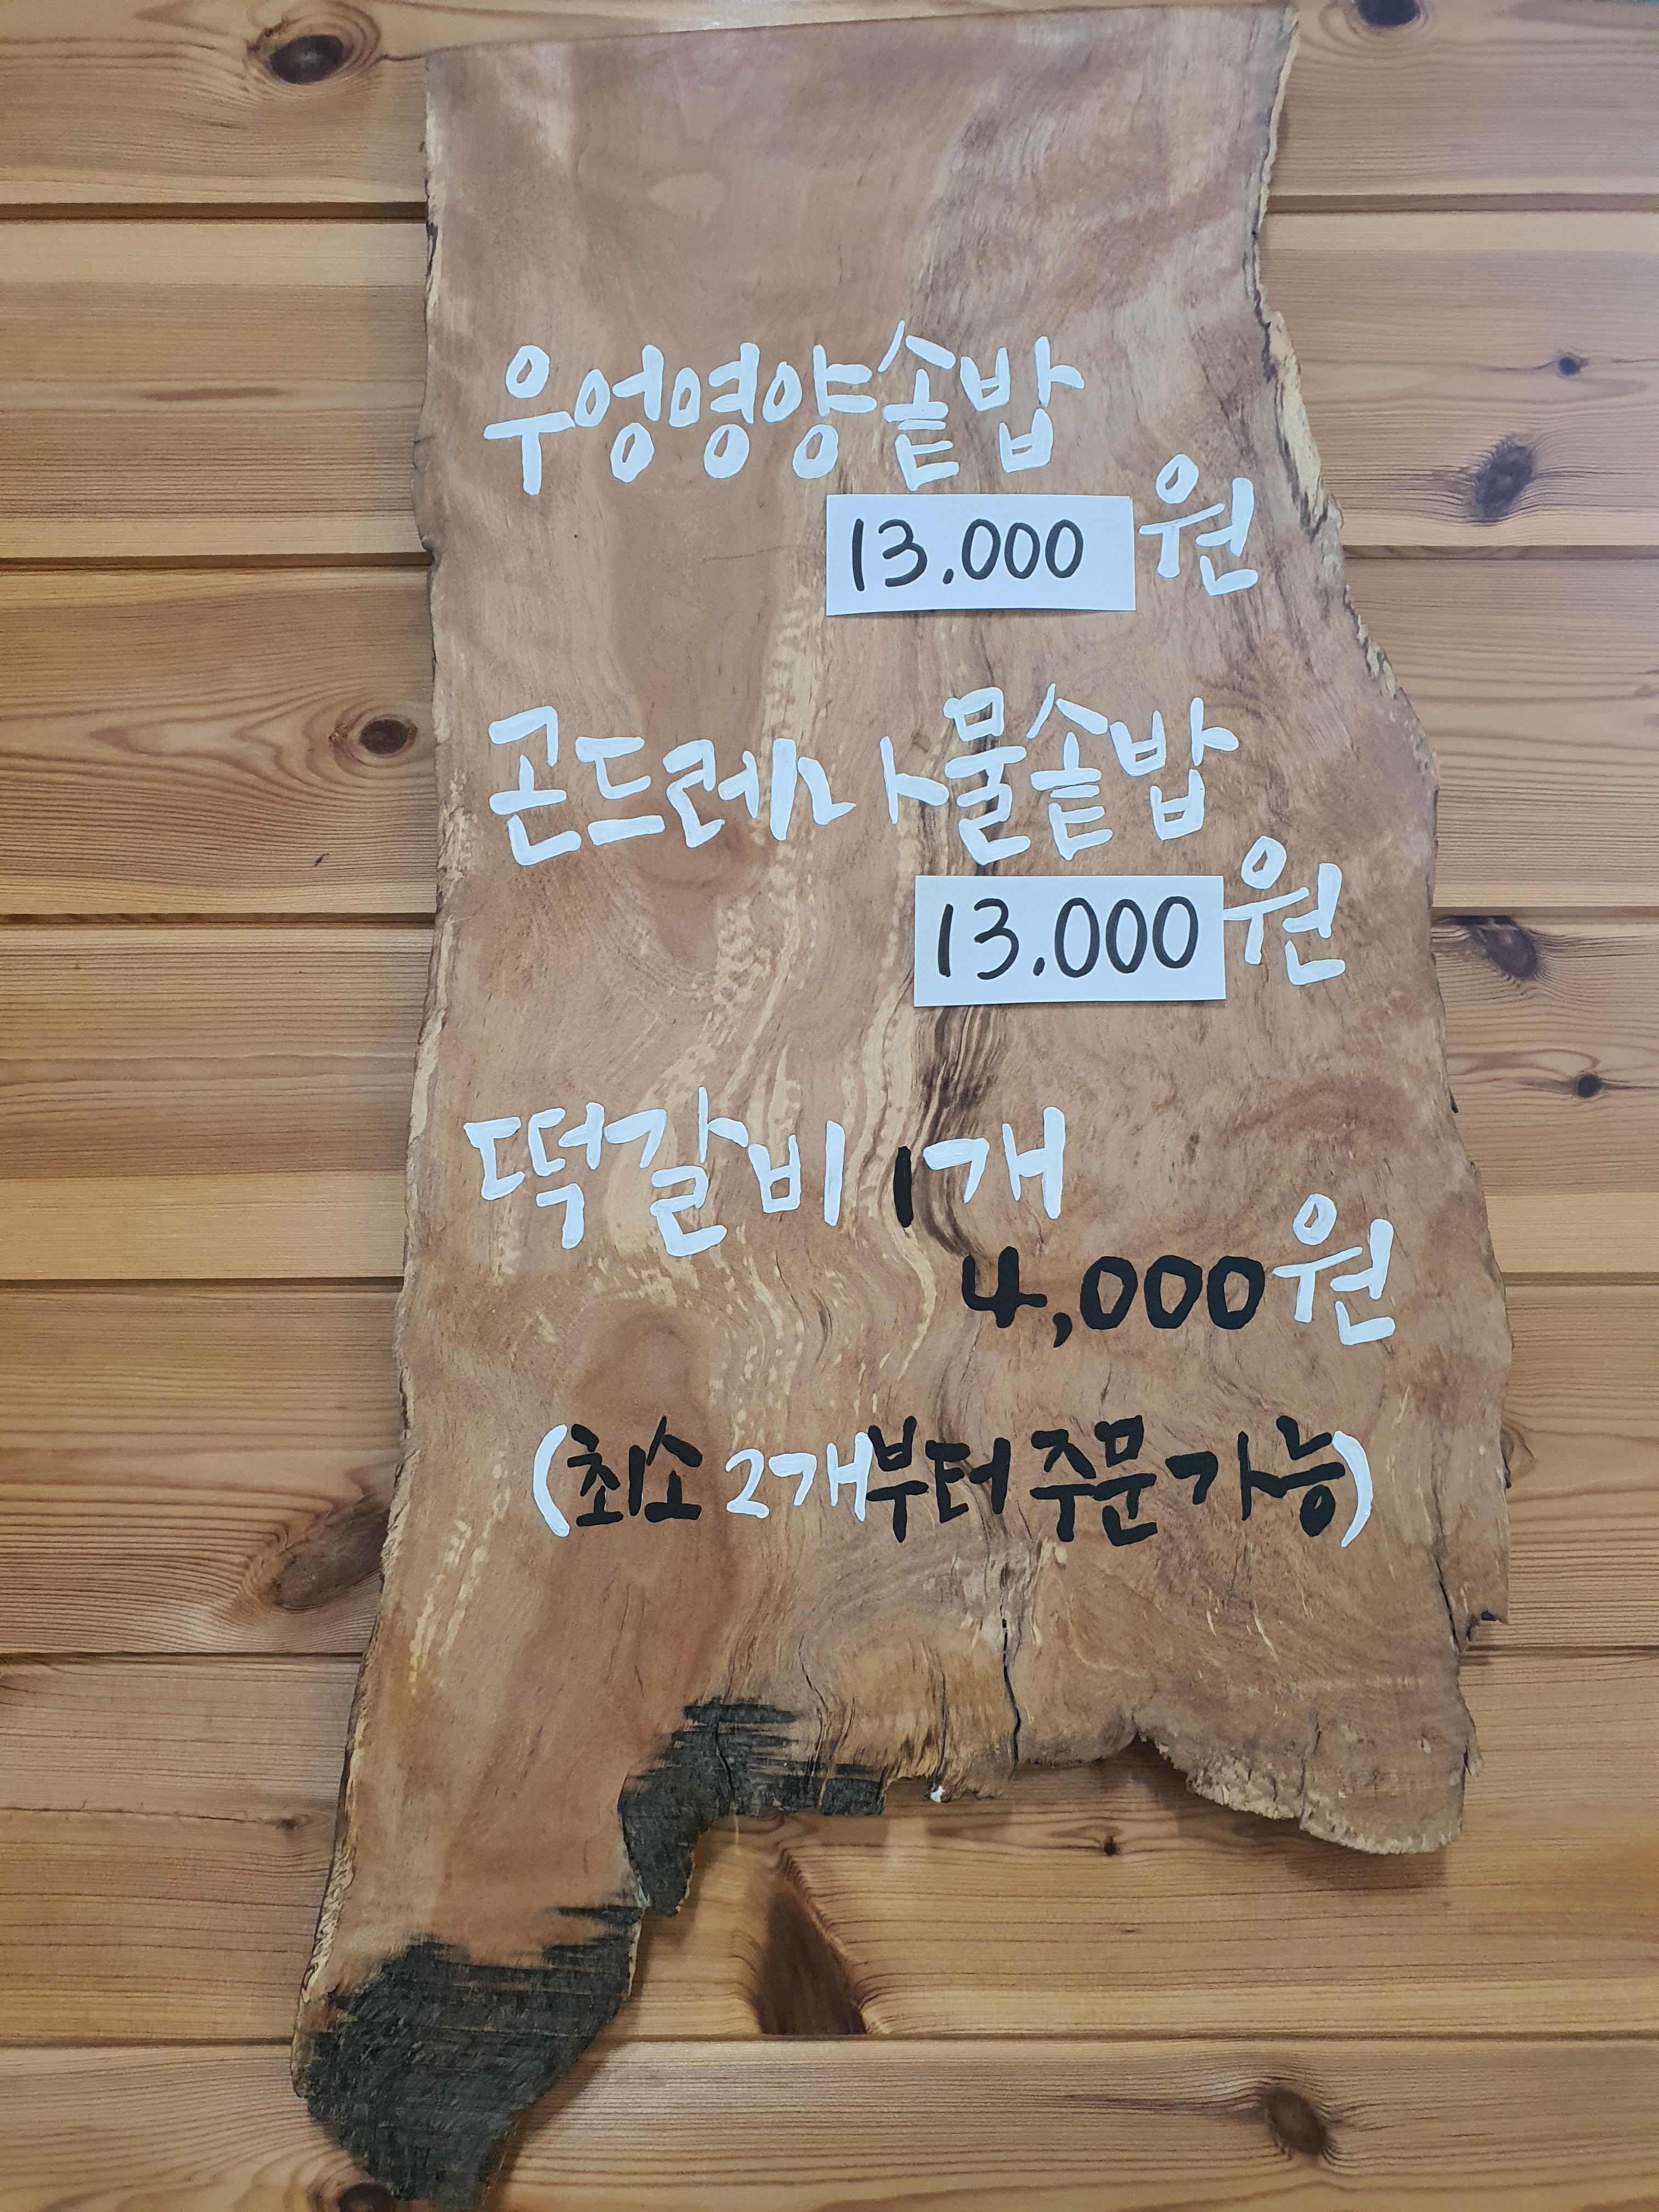 우엉영양솥밥
13.000원
곤드레나물솥밥
13.000원
떡갈비 1개
4,000원
(최소 2개부터 주문가능)